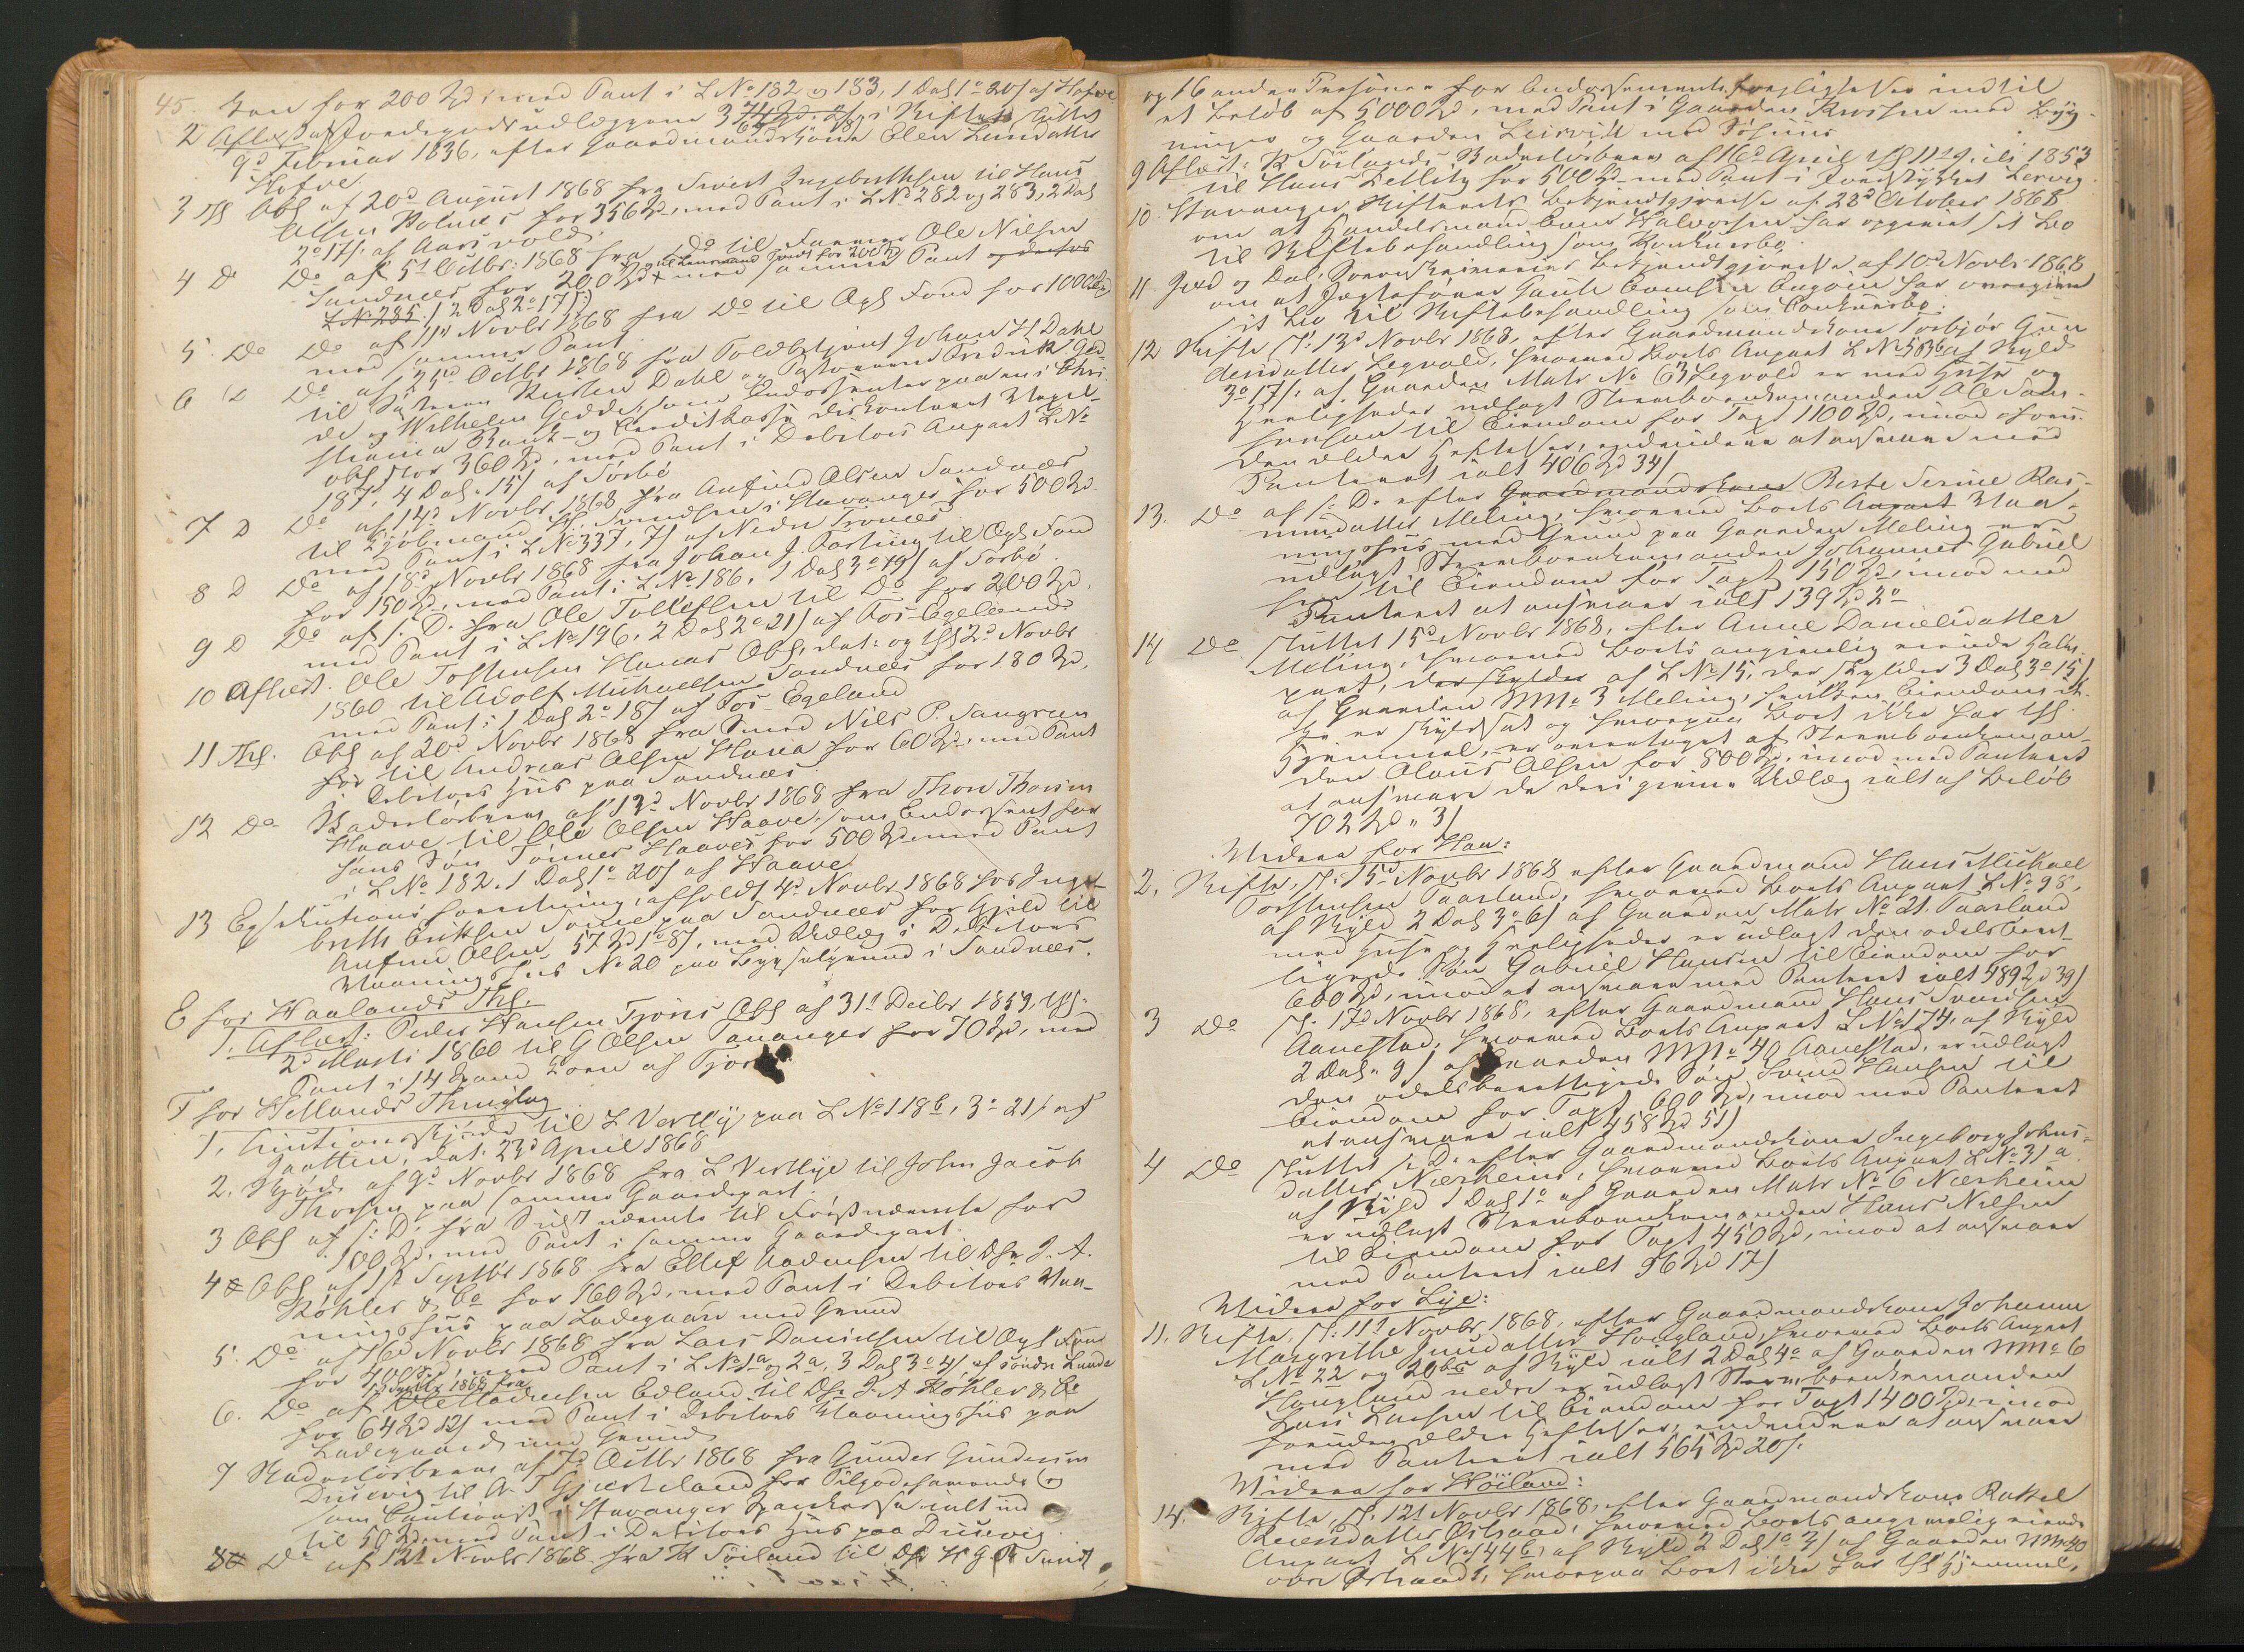 45. Søn for 200 Spd, med Pant i L No 182 og 183, 1 Dal 1 o 20 s af Hofve
2 Aflæst Jordegodsudlæggene 3 i Skiftet sluttet
9d Februar 1836, efter Gaardmandskone Elen Lensdatter
Hofve.
3 Thl Obl af 20d August 1868 fra Sivert Ingebrethsen til Hans
Olsen Holmes for 356 Spd, med Pant i L No 282 og 283, 2 Dal
2 o 17 s. af Aarsvold.
4 D Do af 5t Octbr: 1868 fra Do til Ole Nilsen
Sandnes for 200 Spd med samme Pant og desfor
L No 285. / 2 Dal 2 o 17 s /
5. Do Do af 11t Novbr 1868 fra Do til Opl Fond for 100 Spd
med samme Pant.
6 D Do af 25d Octbr 1868 fra Toldbetjent Johan H Dahl
til Søsteren Kirsten Dahl og Fredrik Ged-
de og Wilhelm Gedde, som Endossenter paa en i Chri-
stiania Bank- og Creditkasse diskonteret Vexel-
obl stor 360 Spd, med Pant i Debitors Anpart L No
187, 4 Dal " 15 s af Sørbø
7 D Do af 14d Novbr 1868 fra Anfind Olsen Sandnæs
til Kjøbmand Svendsen i Stavanger for 500 Spd
med Pant i L No 337, 7 s af Nedre Tronæs
8 D Do af 18d Novbr 1868 fra Johan J. Fasting til Opl Fond
for 150 Spd, med Pant i L No 186, 1 Dal 3 o 19 s af Sørbø.
9 D Do af s. D. fra Ole Tollefsen til Do for 200 Spd,
med Pant i L No 196, 2 Dal 2 o 21 s af Fos-Egeland
10 Aflæst. Ole Tostensen Hanas Obl, dat. og thl 2d Novbr
1860 til Adolf Michaelsen Sandnes for 180 Spd,
med Pant i 1 Dal 2 o 18 s af Fos-Egeland
11 Thl. Obl af 20d Novbr 1868 fra Smed Nils P. Sangreen
for til Andreas Olsen Hana for 60 Spd, med Pant
i Debitors Huus paa Sandnes.
12 Do Skadesløsbrev af 13d Novbr 1868 fra Thore Thorsen
Haave til Ole Olsen Haave, som Endossent for
hans Søn Tønnes Haaves for 500 Spd med Pant
i L No 182. 1 Dal 1 o 20 s af Haave.
13 Exekutionsforretning, afholdt 4d Novbr 1868 hos Inge-
breth Eriksen Some paa Sandnes for Gjeld til
Anfind Olsen 57 Spd 1 o 8 s, med Udlæg i Debitors
Vaaningshus No 20 paa Byxelgrund i Sandnes.
E for Haalands Thl.
1. Aflæst: Peder Hansen Tjøns Obl af 31t Decbr 1859, thl.
2d Marts 1860 til G Olsen Tananger for 70 Spd, med
Pant i 14 Spand Korn af Tjor
F for Hetlands Thinglag
1, Auctionsskjøde til L Vestly paa L No 118 b, 3 o 21 s af
Jaatten, dat. 23d April 1868
2. Skjøde af 9d Novbr 1868 fra L Vestlye til John Jacob
Thorsen paa samme Gaardepart.
3 Obl af s. D. fra Sidstnævnte til Førstnævnte for
100 Spd, med Pant i samme Gaardepart.
4 Obl af 1st Septbr 1868 fra Ellef Aadnesen til Dhr J. A.
Køhler & Co for 160 Spd, med Pant i Debitors Vaa-
ningshus paa Ladegaard med Grund
5. Do af 16d Novbr 1868 fra Lars Danielsen til Opl Fond
for 400 Spd, med Pant i L No 1 a og 2 a, 3 Dal 3 o 4 s af søndre Lunde
15 Septbr 1868 fra
6. Do af Ole Madnesen Edland til Dhr J. A Køhler & Co
for 64 Spd 12 s med Pant i Debitors Vaaningshus paa
Ladegaard med Grund
7 Skadesløsbrev af 7d Octbr 1868 fra Gunder Gundersen
Dusevig til A. T Gjerdeland for Tilgodehavende og
som Cautionist i Stavanger Sparekasse ialt ind
til 50 Spd med Pant i Debitors Hus paa Dusevig.
8 Do af 12t Novbr 1868 fra K Søiland til Dhr H G B Sundt
og 16 andre Personer for Endossementsforpligtelser indtil
et Beløb af 5000 Spd, med Pant i Gaarden Krossen med Byg-
ninger og Gaarden Leirvik med Søhuus
9 Aflæst: K Sørlands Skadesløsbrev af 16d April thl 11t 1853
til Hans Zetlitz for 500 Spd med Pant i Jordstykket Lervig.
10. Stavanger Skifterets Bekjendtgjørelse af 28d October 1868
om at Handelsmand Halvorsen har opgivet sit Bo
til Skiftebehandling som Konkursbo.
11 Jæd. og Dal. Sorenskriveries Bekjendtgjørelse af 10d Novbr 1868
om at Jægtefører har overgivet
sit Bo til Skiftebehandling som Conkursbo.
12 Skifte, sl. 13d Novbr 1868, efter Gaardmandskone Torbjør Gun
dersdatter Legvold, hvorved Boets Anpart L No 583 b af Skyld
3 o 17 s. af Gaarden Matr No 63 Legvold er med Huse og
Herligheder udlagt Stervboenkemanden Ole Tom-
til Eiendom for Taxt 1100 Spd, imod foru-
den ældre Heftelser, endvidere at ansvare med
Panteret ialt 406 Spd 34 s
13. Do af s. D. efter Gaardmandskone Berte Serine Ras-
musdatter Meling, hvorved Boets Anpart Vaa-
ningshus med Grund paa Gaarden Meling er
udlagt Stervboenkemanden Johannes Gabriel
til Eiendom for Taxt 150 Spd, imod med
Panteret at ansvare ialt 139 Spd 2 o
14 Do sluttet 15d Novbr 1868, efter Anne Danielsdatter
Meling, hvorved Boets angivelig eiende Halv-
part, der skylder af L No 15, der skylder 3 Dal 3 o 15 s
af Gaarden MNo 3 Meling, hvilken Eiendom ik-
ke er skyldsat og hvorpaa Boet ikke har thl.
Hjemmel, er overtaget af Stervboenkeman-
den Olaus Olsen for 800 Spd, imod med Panteret
at ansvare de deri givne Udlæg ialt af Beløb
702 Spd " 3 s
Videre for Haa:
2. Skifte, sl. 15d Novbr 1868 efter Gaardmand Hans Mickael
Torstensen Paarland, hvorved Boets Anpart L No 98,
af Skyld 2 Dal 3 o 6 s af Gaarden Matr No 21. Paarland
med Huse og Herligheder er udlagt den odelsberet-
tigede Søn Gabriel Hansen til Eiendom for
600 Spd, imod at ansvare med Panteret ialt 489 Spd 39 s
3 Do sl. 17d Novbr 1868, efter Gaardmand Hans Svendsen
Aanestad, hvorved Boets Anpart L No 174, af Skyld
2 Dal " 9 s af Gaarden MNo 40 Aanestad, er udlagt
den odelsberettigede Søn Svend Hansen til
Eiendom for Taxt 600 Spd, imod med Panteret
at ansvare ialt 458 Spd 51 s
4 Do sluttet s. D. efter Gaardmandskone Ingeborg Johns-
datter Nærheim, hvorved Boets Anpart L No 31 a
af Skyld 1 Dal 1 o af Gaarden Matr No 6 Nærheim
er udlagt Stervboenkemanden Hans Nilsen
til Eiendom for Taxt 450 Spd, imod at ansvare
med Panteret ialt 96 Spd 17 s
Videre for Lye:
11. Skifte, sl. 11t Novbr 1868, efter Gaardmandskone Johanne
Margrethe Knudsdatter Hougland, hvorved Boets Anpart
L No 22 og 20 b af Skyld ialt 2 Dal 4 o af Gaarden MNo 6
Hougland nedre er udlagt Stervboenkemanden
Lars Larsen til Eiendom for Taxt 1400 Spd, imod
foruden ældre Heftelser, endvidere at ansvare
med Panteret ialt 565 Spd 20 s.
Videre for Høiland:
14. Skifte, sl. 12t Novbr 1868, efter Gaardmandskone Rakkel
Reiersdatter Østraad, hvorved Boets angivelig eiende
Anpart L No 144 b, af Skyld 2 Dal 1 o 3 s af Gaarden MNo 40
øvre Østraadt, hvorpaa Boet ikke har thl Hjemmel,